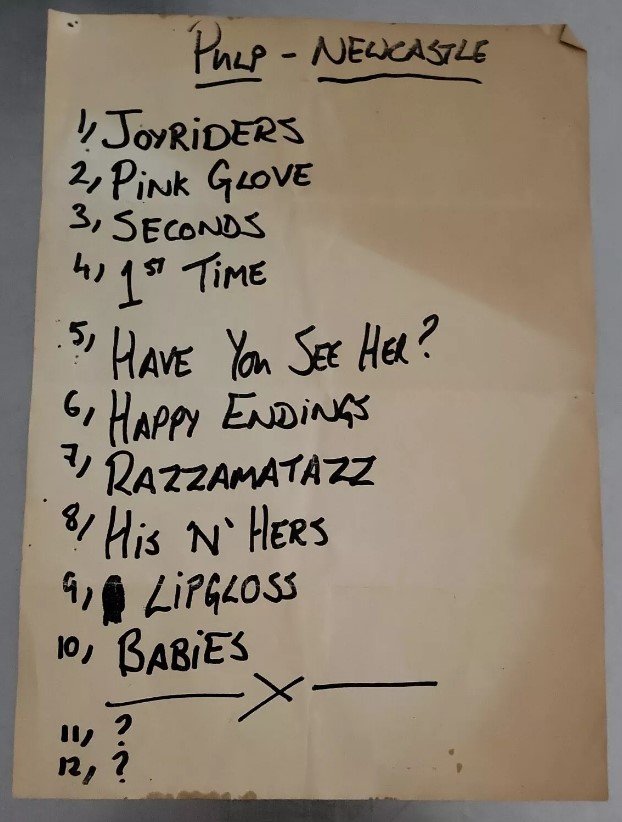 PULP - NEWCASTLE
1, JOYRIDERS
2, PINK GLOVE
3, SECONDS
4, 1ST TIME
5, HAVE YOU SEE HER?
6, HAPPY ENDINGS
7, RAZZAMATAZZ
8, HIS N' HERS
9, LIPGLOSS
10, BABIES
X
11, ?
12, ?